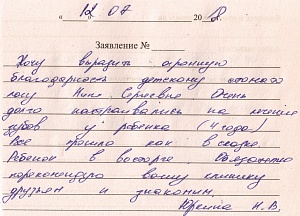 « 12 » 07 2018 г.
Заявление №
Хочу выразить огромную
благодарность детскому стомато
логу Нине Сергеевне Очень
долго настраивались на лечение
зубов у ребенка (4 года)
Все прошло как в сказке.
Ребенок в восторге Обязательно
порекомендую вашу клинику
друзьям и знакомым.
Н. В.